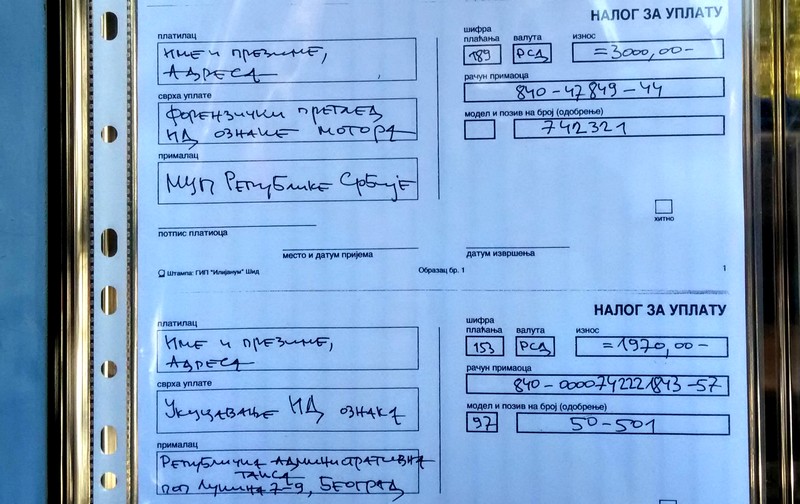 НАЛОГ ЗА УПЛАТУ
платилац
Име и презиме,
Адреса
сврха уплате
Форензички преглед
ИД ознаке мотора
прималац
МУП Републике Србије
шифра плаћања
189
валута
РСД
износ
=3000,00-
рачун примаоца
840-47849-44
модел и позив на број (одобрење)
742321
хитно
потпис платиоца
место и датум пријема
датум извршења
Штампа: ГИП "Илијанум" Шид
Образац бр. 1
1
НАЛОГ ЗА УПЛАТУ
платилац
Име и презиме,
Адреса
сврха уплате
Укуцавање ИД ознака
прималац
Републичка административна
такса
поп Лукина 7-9, Београд
шифра плаћања
153
валута
РСД
износ
=1970,00-
рачун примаоца
840-0000742221843-57
модел и позив на број (одобрење)
97
50-501